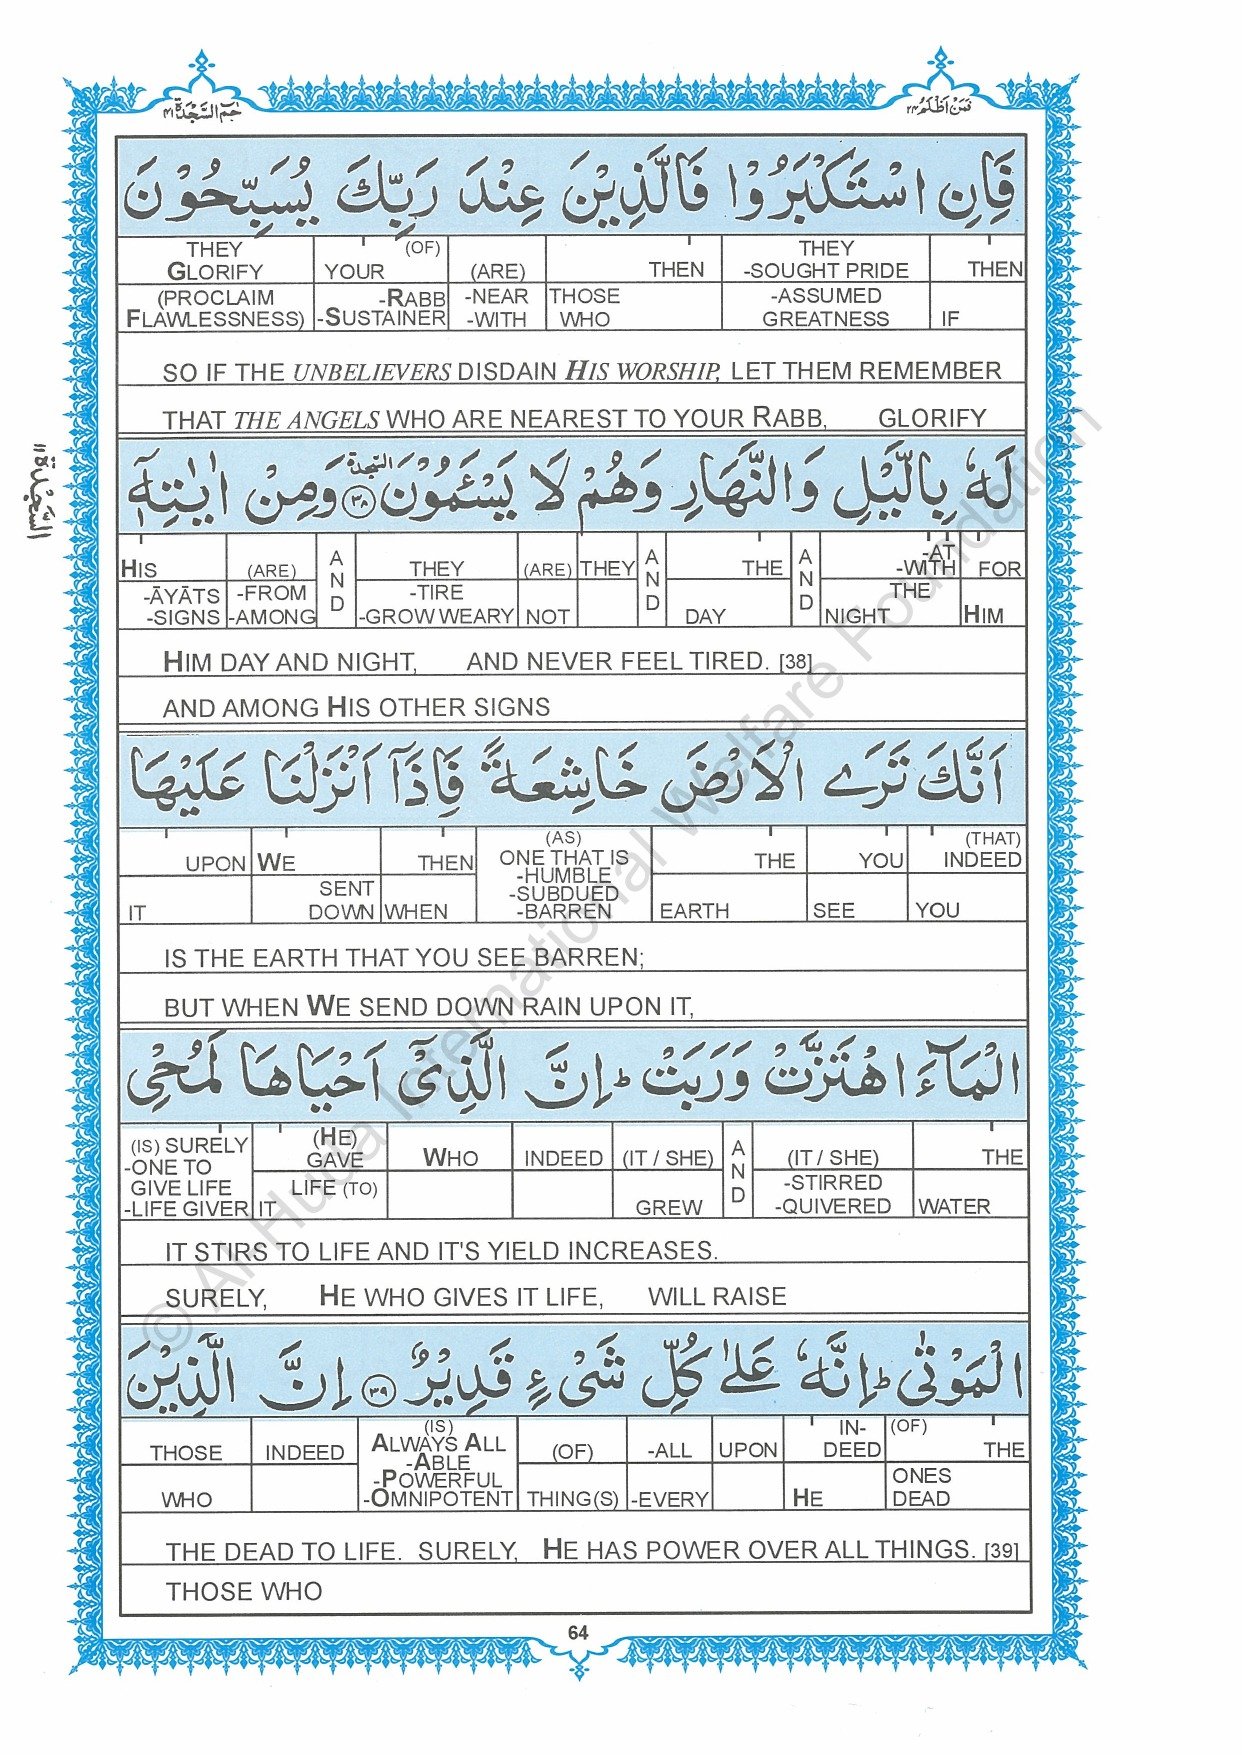 حٰمٓ السَّجْدَة ٤١
فَمَنْ اَظْلَمُ ٢٤
فَاِنِ اسْتَكْبَرُوْا فَالَّذِيْنَ عِنْدَ رَبِّكَ يُسَبِّحُوْنَ
THEY (OF) THEY
GLORIFY YOUR (ARE) THEN -SOUGHT PRIDE THEN
(PROCLAIM -RABB -NEAR THOSE -ASSUMED
FLAWLESSNESS) -SUSTAINER -WITH WHO GREATNESS IF
SO IF THE UNBELIEVERS DISDAIN HIS WORSHIP, LET THEM REMEMBER
THAT THE ANGELS WHO ARE NEAREST TO YOUR RABB, GLORIFY
السَّجْدَة ١١
لَهٗ بِالَّيْلِ وَالنَّهَارِ وَهُمْ لَا يَسْـَٔمُوْنَ السجدة ٣٨ وَمِنْ اٰيٰتِهٖٓ
HIS (ARE) AND THEY (ARE) THEY AND THE AND -AT -WITH FOR
-ĀYĀTS -FROM -TIRE THE
-SIGNS -AMONG -GROW WEARY NOT DAY NIGHT HIM
HIM DAY AND NIGHT, AND NEVER FEEL TIRED. [38]
AND AMONG HIS OTHER SIGNS
اَنَّكَ تَرَى الْاَرْضَ خَاشِعَةً فَاِذَآ اَنْزَلْنَا عَلَيْهَا
(AS) (THAT)
UPON WE THEN ONE THAT IS THE YOU INDEED
-HUMBLE
SENT -SUBDUED
IT DOWN WHEN -BARREN EARTH SEE YOU
IS THE EARTH THAT YOU SEE BARREN;
BUT WHEN WE SEND DOWN RAIN UPON IT,
الْمَآءَ اهْتَزَّتْ وَرَبَتْ ط اِنَّ الَّذِيْٓ اَحْيَاهَا لَمُحْيِ
(IS) SURELY (HE) AND
-ONE TO GAVE WHO INDEED (IT / SHE) (IT / SHE) THE
GIVE LIFE LIFE (TO) -STIRRED
-LIFE GIVER IT GREW -QUIVERED WATER
IT STIRS TO LIFE AND IT'S YIELD INCREASES.
SURELY, HE WHO GIVES IT LIFE, WILL RAISE
الْمَوْتٰى ط اِنَّهٗ عَلٰى كُلِّ شَىْءٍ قَدِيْرٌ ٣٩ اِنَّ الَّذِيْنَ
(IS) IN- (OF)
THOSE INDEED ALWAYS ALL (OF) -ALL UPON DEED THE
-ABLE
-POWERFUL ONES
WHO -OMNIPOTENT THING(S) -EVERY HE DEAD
THE DEAD TO LIFE. SURELY, HE HAS POWER OVER ALL THINGS. [39]
THOSE WHO
64
© Al-Huda International Welfare Foundation